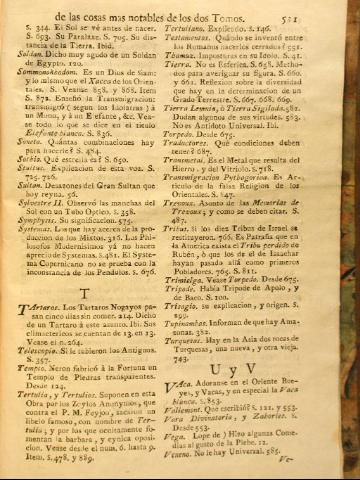 de las cosas mas notables de los dos Tomos. 521
S. 344. El Sol se vé antes de nacer.
S. 653. Su Paralaxe. S. 705. Su dis-
tancia de la Tierra. Ibid.
Soldan. Dicho muy agudo de un Soldan
de Egypto. 120.
Sommonokodom. Es un Dios de Siam:
y lo mismo que el Xacca de los Orien-
tales. S. Veanse 858. y 868. Item
S. 872. Enseñó la Transmigracion:
transmigró (segun los Siamitas) à
un Mono, y à un Elefante, &c. Vea-
se todo lo que se dice en el titulo
Elefante blanco. S. 836.
Soneto. Quántas combinaciones hay
para hacerle? S. 484.
Sothis. Qué estrella es? S. 650.
Statice. Explicacion de esta voz. S.
705. 716.
Sultan. Desatones del Gran Sultan que
hoy reyna. 56.
Sylvestre II. Observó las manchas del
Sol con un Tubo Optico. S. 358.
Symphysis. Su significacion. 575.
Systemas. Los que hay acerca de la pro-
duccion de los Mixtos. 316. Los Phi-
losofos Modernisimos yá no hacen
aprecio de Systemas. S. 481. El Systema
Copernicano no se prueba con la
inconstancia de los Pendulos. S. 676.
T
TArtaros. Los Tartaros Nogayos pa-
san cinco dias sin comer. 214. Dicho
de un Tartaro à este asunto. Ibi. Sus
climactericos se cuentan de 13. en 13.
Vease el n. 264.
Telescopio. Si le tubieron los Antiguos.
S. 357.
Templo. Neron fabricó à la Fortuna un
Templo de Piedras transparentes.
Desde 124.
Tertulia, y Tertulios. Suponen en esta
Obra por los Zoylos Anonymos, que
contra el P. M. Feyjoó, sacaron un
libelo famoso, con nombre de Ter-
tulia; y por los que ocultamente fo-
mentan la barbara, y cynica oposi-
cion. Vease desde el num. 6. hasta 9.
Item. S. 478. y 889.
Tertuliano. Explicase. S. 146.
Testamentos. Quándo se inventó entre
los Romanos hacerlos cerrados? 551.
Thamas. Imposturas en su Idolo. S. 41.
Tierra. No es Esferica. S. 658. Metho-
dos para averiguar su figura. S. 660.
y 661. Reflexion sobre la diversidad
que hay en la determinacion de un
Grado Terrestre. S. 667. 668. 669.
Tierra Lemnia, ò Tierra Sigilada. 582.
Dudan algunos de sus virtudes. 583.
No es Antidoto Universal. Ibi.
Torpedo. Desde 675.
Traductores. Qué condiciones deben
tener? 687.
Transmetal. Es el Metal que resulta del
Hierro, y del Vitriolo. S. 718.
Transmigracion Pythagorica. Es Ar-
ticulo de la falsa Religion de los
Orientales. S. 147.
Trevoux. Asonto de las Memorias de
Trevoux; y como se deben citar. S.
487.
Tribu. Si los diez Tribus de Israel se
restituyeron. 766. Es Patraña que en
la America exista el Tribu perdido de
Rubén, ò que los de el de Isaachar
hayan pasado allá como primeros
Pobladores. 764. S. 811.
Trimielga. Vease Torpedo. Desde 675.
Tripode. Había Tripode de Apolo, y
de Baco. S. 100.
Trivogio, su explicacion, y origen. S.
199.
Topinambas. Informan de que hay Ama-
zonas. 382.
Turquesas. Hay en la Asia dos rocas de
Turquesas, una nueva, y otra vieja.
743.
U y V
VAca. Adoranse en el Oriente Bue-
yes, y Vacas, y en especial la Vaca
blanca. S. 853.
Vallemont. Que escribió? S. 121. y 553.
Vara Divinatoria, y Zahories. S.
Desde 553.
Vega. Lope de) Hizo algunas Come-
dias al gusto de la Plebe. 12.
Veneno. No le hay Universal. 585.
Ve-